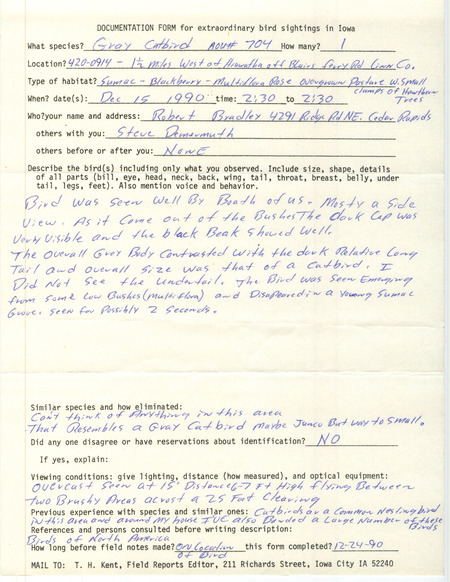 DOCUMENTATION FORM for extraordinary bird sightings in Iowa
What species? Gray Catbird AOU# 704 How many? 1
Location? 420-0914 - 1½ Miles West of Hiawatha off Blairs Ferry Rd Linn Co.
Type of habitat? Sumac - Blackberry - Multiflora Rose overgrown Pasture W. Small
clumps of Hawthorn
Trees
When? date(s): Dec 15 1990 time: 2:30 to 2:30
Who? your name and address: Robert Bradley 4291 Ridge Rd NE. Cedar Rapids
others with you: Steve Demermuth
others before or after you: NONE
Describe the bird(s) including only what you observed. Include size, shape, details
of all parts (bill, eye, head, neck, back, wing, tail, throat, breast, belly, under
tail, legs, feet). Also mention voice and behavior.
Bird was seen Well By Boath of us. Mosty a Side
View. As it Come out of the Bushes The dark Cap was
Very Visible and the black Beak Showed Well.
The Overall Grey Body Contrasted with the dark Relative Long
Tail and overall size was that of a Catbird. I
Did Not See the Undertail. The Bird was Seen Emerging
from some low Bushes (Multiflora) and Disapeared in a young Sumac
Grove. seen for Possibly 2 Seconds.
Similar species and how eliminated:
Cant think of Anything in this area
That Resembles a Gray Catbird maybe Junco But way to Small.
Did any one disagree or have reservations about identification? NO
If yes, explain:
Viewing conditions: give lighting, distance (how measured), and optical equipment:
Overcast Seen at 15' Distance 6-7 Ft High flying Between
two Brushy Areas acrost a 25 Foot Clearing
Previous experience with species and similar ones: Catbirds are a Common Nesting bird
in this area and around my house I've also Banded a Large Number of these
Birds
References and persons consulted before writing description:
Birds of North America
How long before field notes made? ON Location this form completed? 12-24-90
of Bird
MAIL TO: T. H. Kent, Field Reports Editor, 211 Richards Street, Iowa City IA 52240